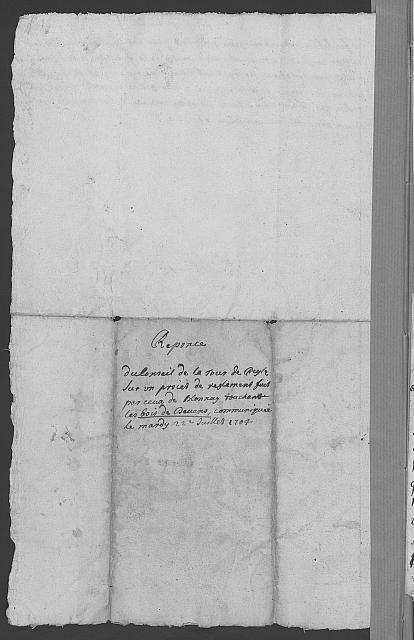 Reponce
du Conseil de la Tour de Peylz
sur un projet de reglement fait
par ceux de Blonnay touchant
les bois de Devens, communiquée
le mardy 22e Juillet 1704